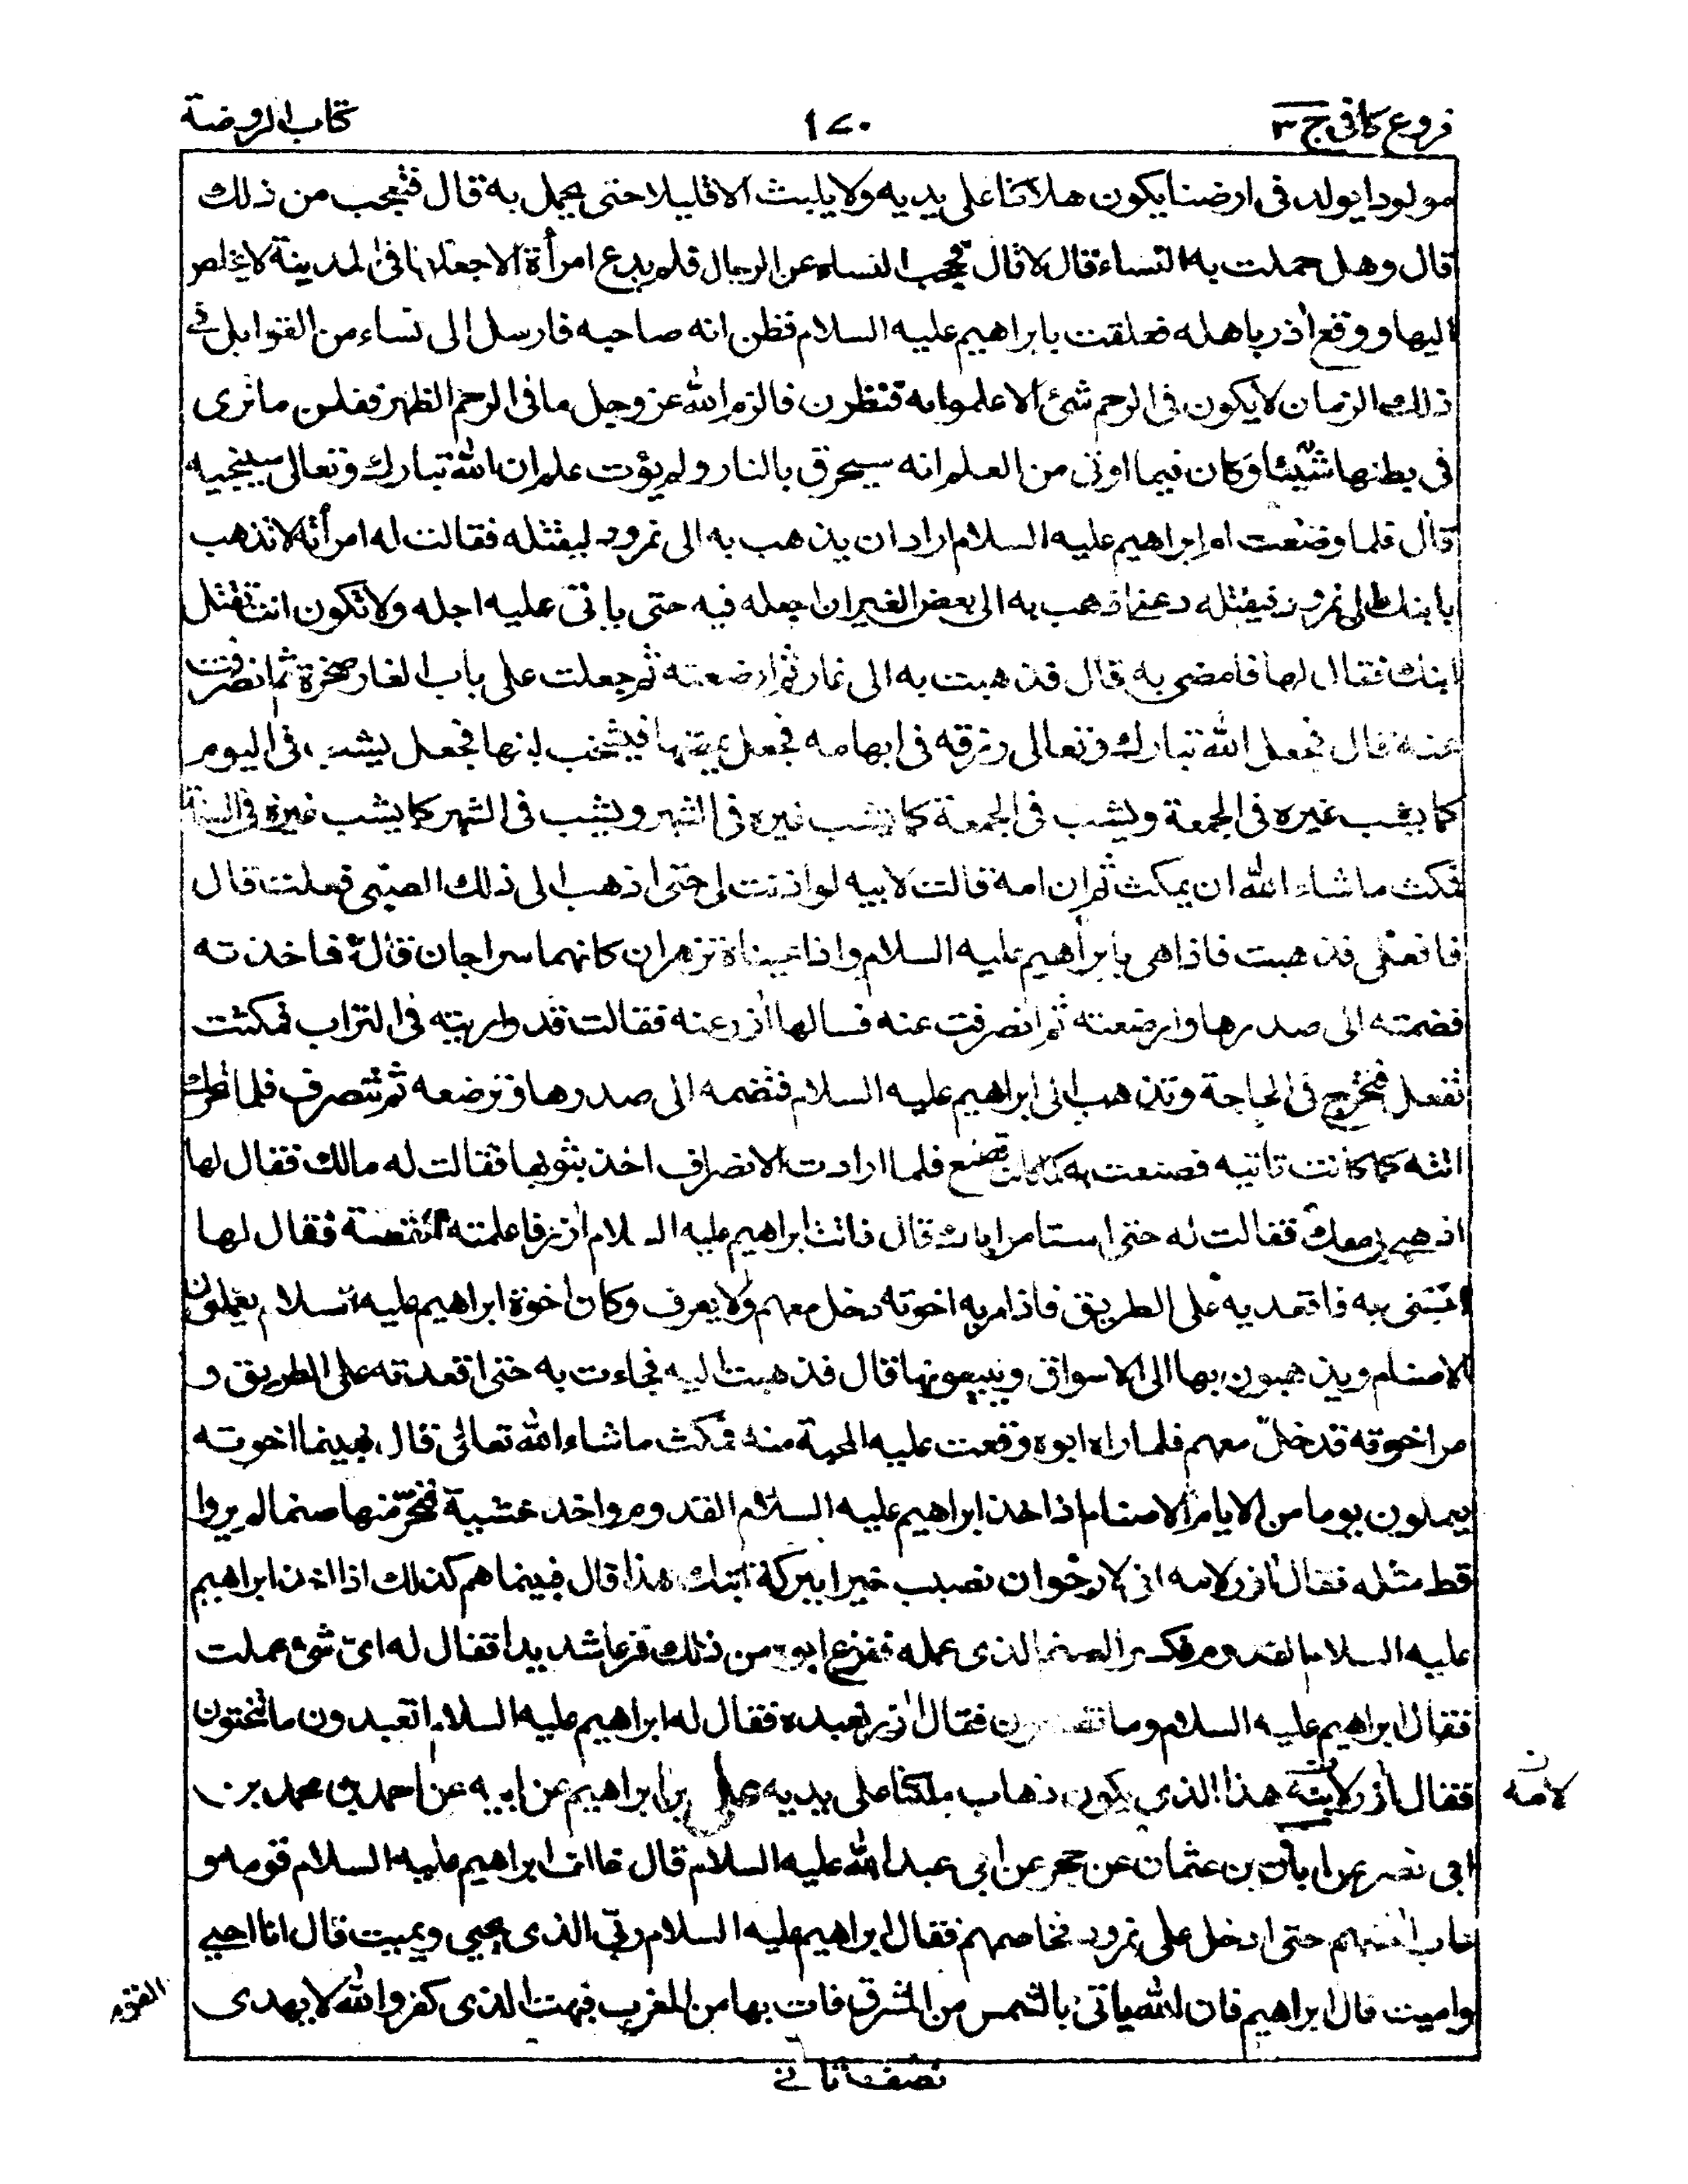 فروع كافى ج ٣
١٧٠
كتاب الروضة
مولودا يولد فى ارضنا يكون هلاكنا على يديه ولا يلبث الا قليلا حتى يحمل به قال فتعجب من ذلك
قال وهل حملت به النساء قال لا قال فحجب النساء عن الرجال فلم يدع امرأة الا جعلها فى المدينة لا يخلص
اليها ووقع اذر باهله فعلقت بابراهيم عليه السلام فظن انه صاحبه فارسل الى نساء من القوابل فى
ذلك الزمان لا يكون فى الرحم شئ الا علموا به فنظرن فالزم الله عز وجل ما فى الرحم الظهر فقلن ما نرى
فى بطنها شيئا وكان فيما اوتى من العلم انه سيحرق بالنار ولم يؤت علم ان الله تبارك وتعالى سينجيه
قال فلما وضعت ام ابراهيم عليه السلام اراد ان يذهب به الى نمرود ليقتله فقالت له امرأته لا تذهب
بابنك الى نمرود فيقتله دعنى اذهب به الى بعض الغيران اجعله فيه حتى ياتى عليه اجله ولا تكون انت تقتل
ابنك فقال لها فامضى به قال فذهبت به الى غار ثم ارضعته ثم جعلت على باب الغار صخرة ثم انصرفت
عنه قال فجعل الله تبارك وتعالى رزقه فى ابهامه فجعل يمصها فيشخب لبنها فجعل يشب فى اليوم
كما يشب غيره فى الجمعة ويشب فى الجمعة كما يشب غيره فى الشهر ويشب فى الشهر كما يشب غيره فى السنة
فمكث ما شاء الله ان يمكث ثم ان امه قالت لابيه لو اذنت لى حتى اذهب الى ذلك الصبى فعلت قال
فافعلى فذهبت فاذا هى بابراهيم عليه السلام واذا عيناه تزهران كانهما سراجان قال فاخذته
فضمته الى صدرها وارضعته ثم انصرفت عنه فسالها اذر عنه فقالت قد واريته فى التراب فمكثت
تفعل فتخرج فى الحاجة وتذهب الى ابراهيم عليه السلام فتضمه الى صدرها وترضعه ثم تنصرف فلما تحرك
اتته كما كانت تاتيه فصنعت به كما كانت تصنع فلما ارادت الانصراف اخذ بثوبها فقالت له مالك فقال لها
اذهبى بى معك فقالت له حتى استامر اباك قال فاتت ام ابراهيم عليه السلام اذر فاعلمته القصة فقال لها
ائتينى به فاقعديه على الطريق فاذا مر به اخوته دخل معهم ولا يعرف وكان اخوة ابراهيم عليه السلام يعملون
الاصنام ويذهبون بها الى الاسواق ويبيعونها قال فذهبت اليه فجاءت به حتى اقعدته على الطريق و
مر اخوته فدخل معهم فلما راه ابوه وقعت عليه المحبة منه فمكث ما شاء الله تعالى قال فبينما اخوته
يعملون يوما من الايام الاصنام اذا اخذ ابراهيم عليه السلام القدوم واخذ خشبة فنجر منها صنما لم يروا
قط مثله فقال اذر لامه انى لارجو ان نصيب خيرا ببركة ابنك هذا قال فبينما هم كذلك اذا اخذ ابراهيم
عليه السلام القدوم فكسر الصنم الذى عمله ففزع ابوه من ذلك فزعا شديدا فقال له اى شئ عملت
فقال ابراهيم عليه السلام وما تصنعون فقال اذر نعبده فقال له ابراهيم عليه السلام اتعبدون ما تنحتون
فقال اذر لابنته هذا الذي يكون ذهاب ملكنا على يديه على بن ابراهيم عن ابيه عن احمد بن محمد بن
لامه ن
ابى نصر عن ابان بن عثمان عن حجر عن ابى عبد الله عليه السلام قال خالف ابراهيم عليه السلام قومه و
عاب الهتهم حتى ادخل على نمرود فخاصمهم فقال ابراهيم عليه السلام ربى الذى يحيى ويميت قال انا احيى
واميت قال ابراهيم فان الله ياتى بالشمس من المشرق فات بها من المغرب فبهت الذى كفر والله لا يهدى
القوم
نصف ثانى